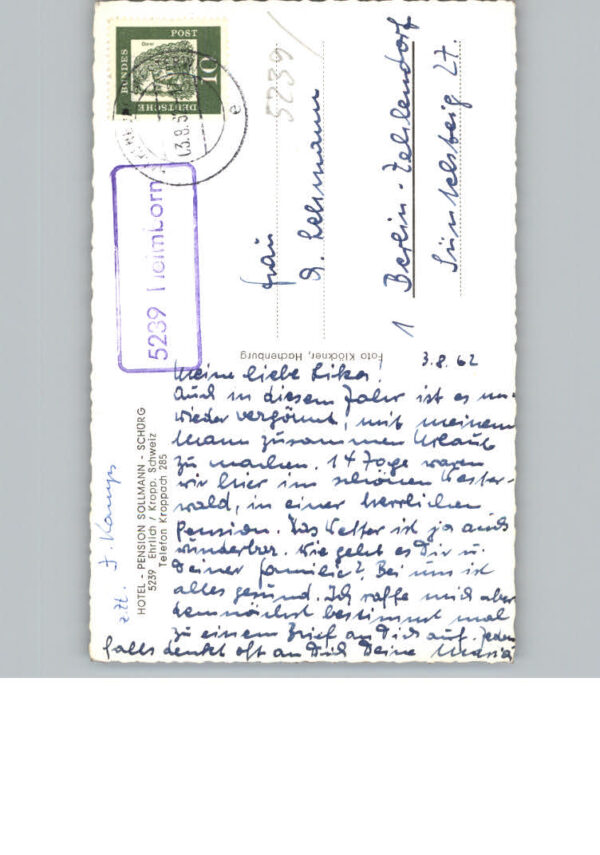 HOTEL - PENSION SOLLMANN - SCHÜRG
5239 Ehrlich / Kropp. Schweiz
Telefon Kroppach 285
z.Zt.
3.8.62
Meine liebe
Auch in diesem Jahr ist es uns
wieder vergönnt, mit meinem
Mann zusammen Urlaub
zu machen. 14 Tage waren
wir hier im schönen Wester-
wald, in einer herrlichen
Pension. Das Wetter ist ja auch
wunderbar. Wie geht es Dir u.
Deiner Familie? Bei uns ist
alles gesund. Ich raffe mich aber
demnächst bestimmt mal
zu einem Brief an Dich auf. Jeden
falls denkt oft an Dich Deine Maria
Foto Klöckner, Hachenburg
DEUTSCHE
BUNDES
POST
10
03.8.6
e
5239
5239/
Frau
Lehmann
1 Berlin-Zehlendorf
27.